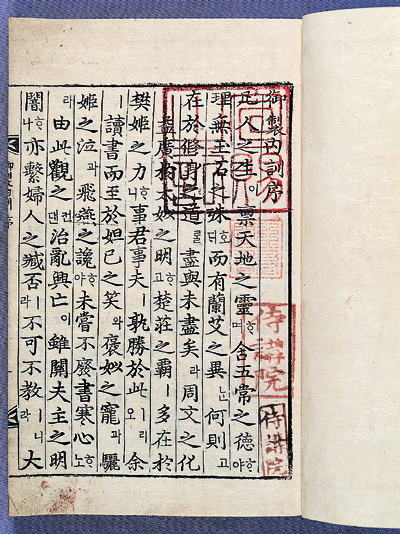 御製內訓序
凡人之生이稟天地之靈ᄒᆞ며含五常之德ᄒᆞ야
理無玉石之殊호ᄃᆡ而有蘭艾之異ᄂᆞᆫ何則고
在於修身之道ᄅᆞᆯ盡與未盡矣라周文之化
益廣於太姒之明ᄒᆞ고楚莊之霸ㅣ多在於
樊姬之力ᄒᆞ니事君事夫ㅣ孰勝於此리오余
ㅣ讀書而至於妲己之笑와褒姒之寵과驪
姬之泣과飛燕之讒ᄒᆞ야未嘗不廢書寒心ᄒᆞ노
라由此觀之컨댄治亂興亡이雖關夫主之明
闇ᄒᆞ나亦繫婦人之臧否ㅣ라不可不教ㅣ니라大
侍講院
侍講院